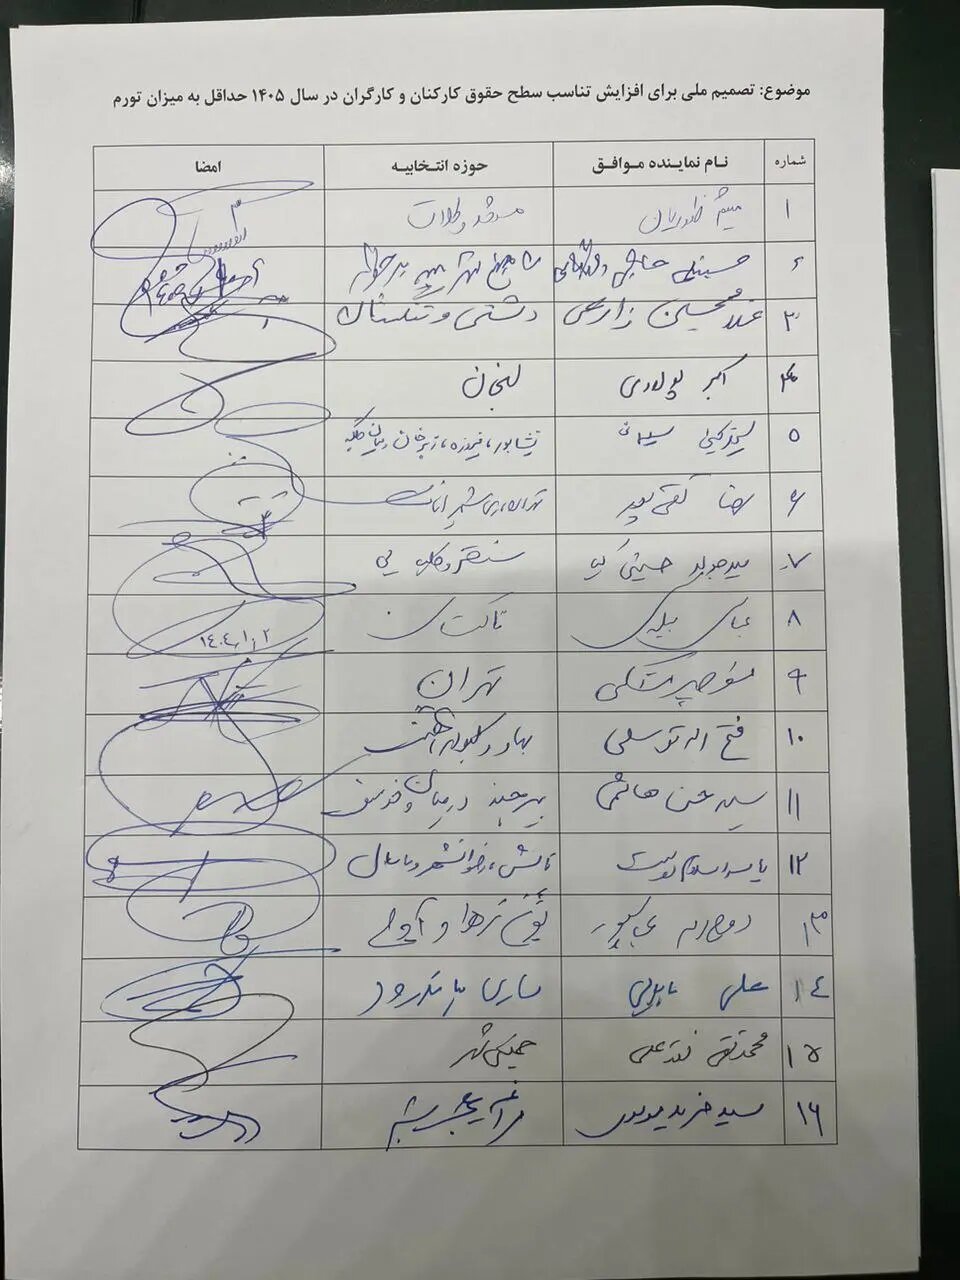 موضوع: تصمیم ملی برای افزایش تناسب سطح حقوق کارکنان و کارگران در سال ۱۴۰۵ حداقل به میزان تورم
شماره نام نماینده موافق حوزه انتخابیه امضا
۱ میثم ظهوریان مشهد و کلات
۲ حسینعلی حاجی دلیگانی شاهین شهر میمه برخوار
۳ غلامحسین زارعی دشتی و تنگستان
۴ اکبر پولادی لنجان
۵ سبحانی نیشابور، فیروزه، زبرخان، میان جلگه
۶ رضا تقی پور تهران، ری، شمیرانات
۷ سید جواد حسینی کیا سنقر و کلیایی
۸ عباس بیگدلی تاکستان ۱۴۰۴/۱۰/۲
۹ تهران
۱۰ فتح اله توسلی بهار و کبودرآهنگ
۱۱ سید حسن هاشمی بیرجند درمیان و خوسف
۱۲ تالش، رضوانشهر و ماسال
۱۳ روح اله عباسپور بوئین زهرا و آوج
۱۴ علی بابایی ساری میاندرود
۱۵ محمدتقی نقدعلی خمینی شهر
۱۶ سید فرید موسوی مراغه عجب شیر